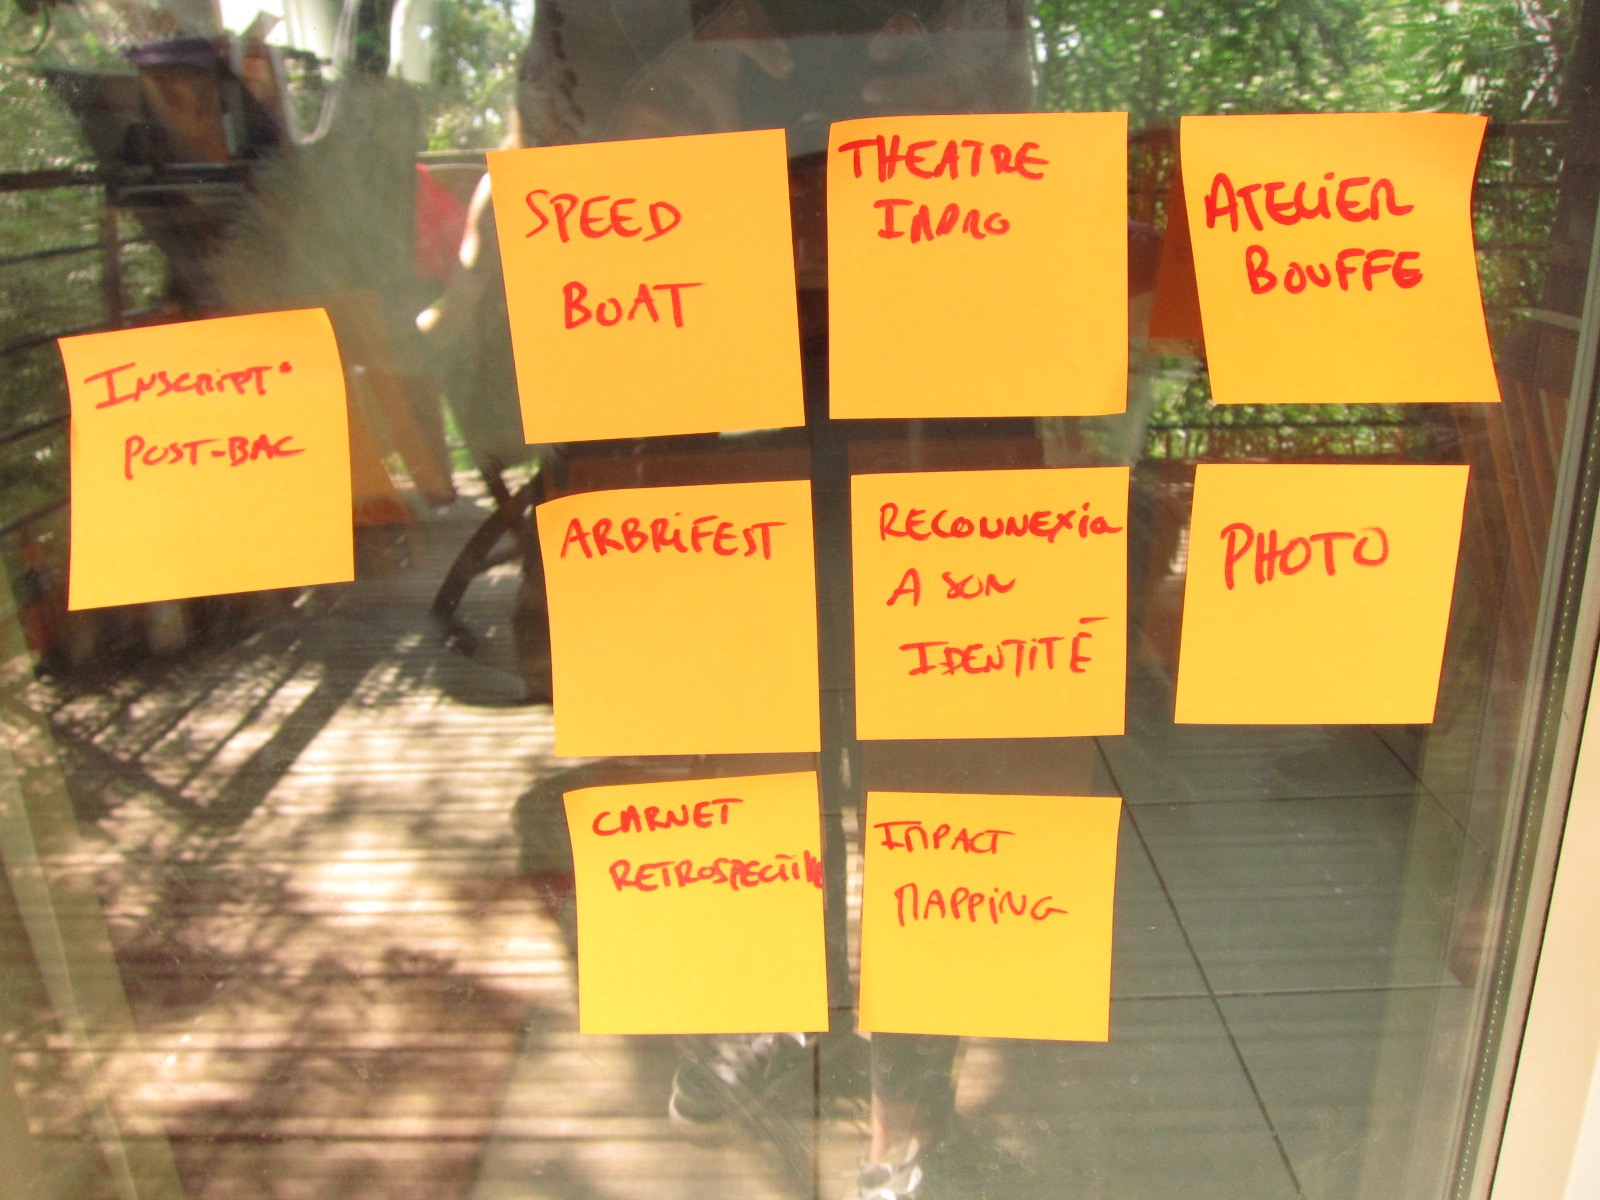 INSCRIPT°
POST-BAC
SPEED
BOAT
THEATRE
IMPRO
ATELIER
BOUFFE
ARBRIFEST
RECONNEXIO
A SON
IDENTITÉ
PHOTO
CARNET
RETROSPECTIVE
IMPACT
MAPPING